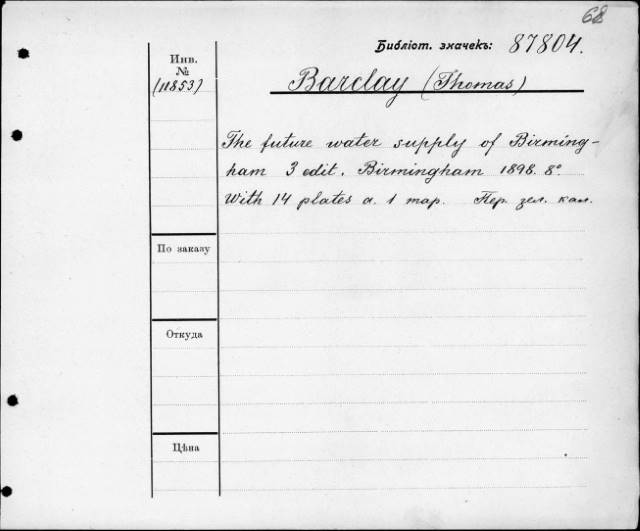 68
Библіот. значекъ: 87804.
Инв.
№
(11853)
Barclay (Thomas)
The future water supply of Birming-
ham 3 edit. Birmingham 1898. 8°.
With 14 plates a. 1 map. Пер. зел. кал.
По заказу
Откуда
Цѣна